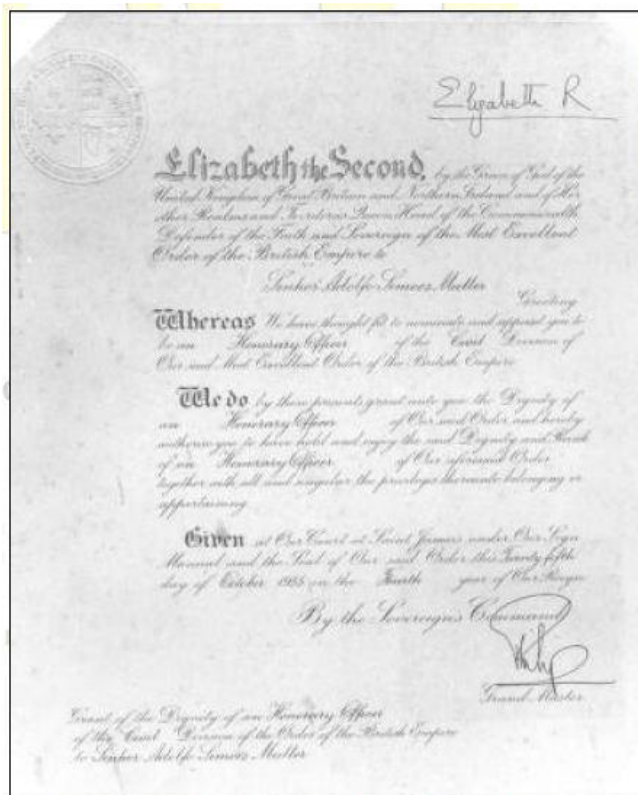 Elizabeth R
Elizabeth the Second, by the Grace of God of the
United Kingdom of Great Britain and Northern Ireland and of Her
other Realms and Territories Queen Head of the Commonwealth
Defender of the Faith and Sovereign of the Most Excellent
Order of the British Empire to
Senhor Adolfo Simoes Muller
Greeting
Whereas We have thought fit to nominate and appoint you to
be an Honorary Officer of the Civil Division of
Our said Most Excellent Order of the British Empire
We do by these presents grant unto you the Dignity of
an Honorary Officer of Our said Order and hereby
authorise you to have hold and enjoy the said Dignity and Rank
of an Honorary Officer of Our aforesaid Order
together with all and singular the privileges thereunto belonging or
appertaining
Given at Our Court at Saint James's under Our Sign
Manual and the Seal of Our said Order this Twenty fifth
day of October 1955 in the Fourth year of Our Reign
By the Sovereign's Command
Philip
Grand Master
Grant of the Dignity of an Honorary Officer
of the Civil Division of the Order of the British Empire
to Senhor Adolfo Simoes Muller